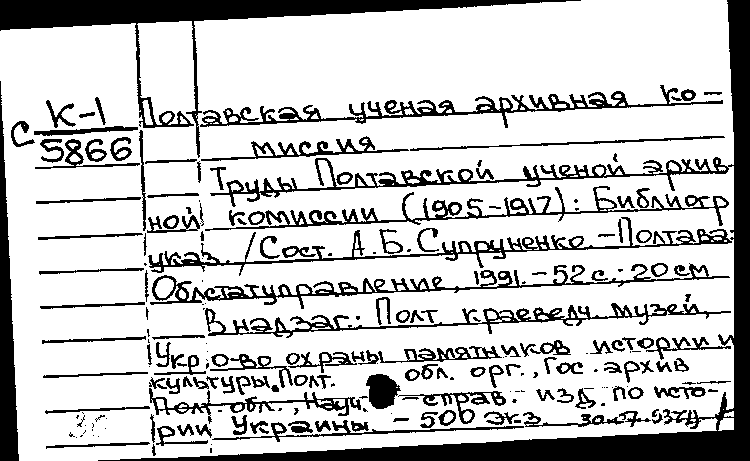 С К-1 Полтавская ученая архивная ко-
5866 миссия
Труды Полтавской ученой архив-
ной комиссии (1905-1917): Библиогр
указ. / Сост. А.Б. Супруненко. - Полтава:
Облстатуправление, 1991. - 52 с.; 20 см
В надзаг.: Полт. краеведч. музей,
Укр. о-во охраны памятников истории и
культуры. Полт. обл. орг., Гос. архив
Полт. обл., Науч. -справ. изд. по исто-
рии Украины. - 500 экз.